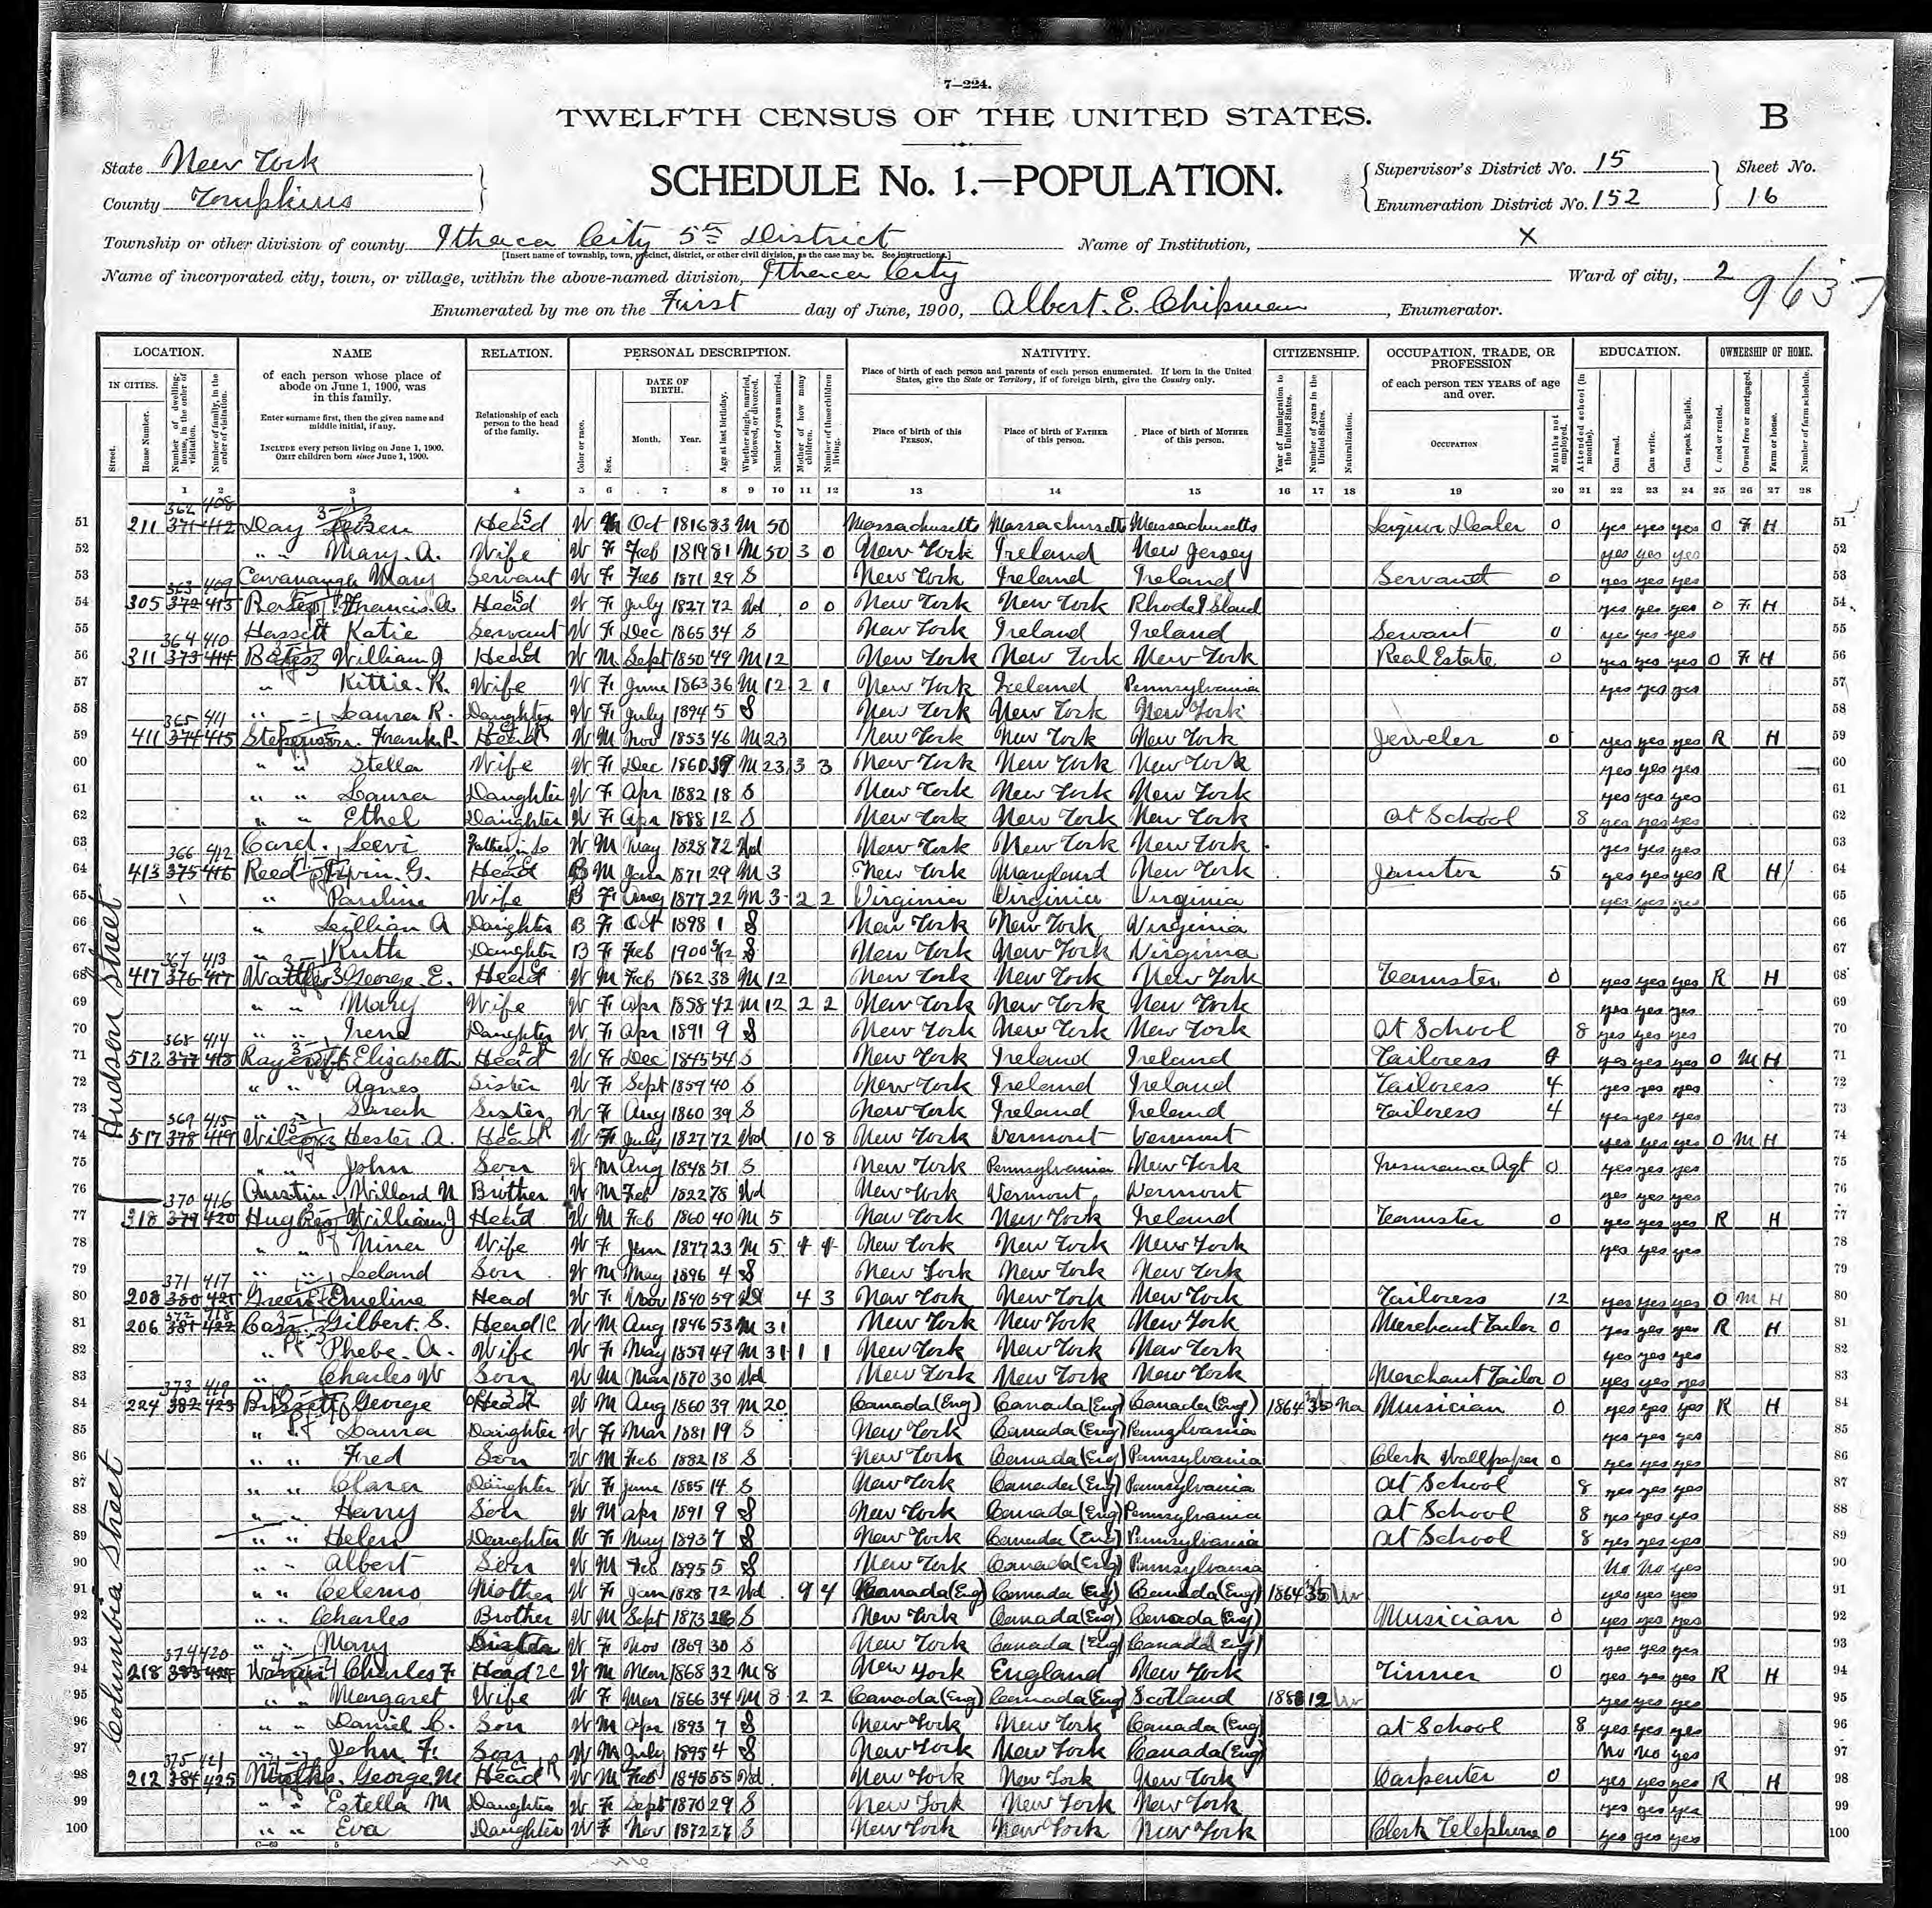 7—224.
TWELFTH CENSUS OF THE UNITED STATES.
B
State New York
County Tompkins
SCHEDULE No. 1.—POPULATION.
Supervisor's District No. 15
Enumeration District No. 152
Sheet No.
16
Township or other division of county Ithaca City 5th District
Name of Institution, X
[Insert name of township, town, precinct, district, or other civil division, as the case may be. See instructions.]
Name of incorporated city, town, or village, within the above-named division, Ithaca City
Ward of city, 2
Enumerated by me on the First day of June, 1900, Albert. E. Chipman, Enumerator.
LOCATION. NAME RELATION. PERSONAL DESCRIPTION. NATIVITY. CITIZENSHIP. OCCUPATION, TRADE, OR PROFESSION EDUCATION. OWNERSHIP OF HOME.
IN CITIES.
Street.
House Number.
Number of dwelling-house, in the order of visitation.
Number of family, in the order of visitation.
of each person whose place of abode on June 1, 1900, was in this family.
Enter surname first, then the given name and middle initial, if any.
INCLUDE every person living on June 1, 1900.
OMIT children born since June 1, 1900.
Relationship of each person to the head of the family.
Color or race.
Sex.
DATE OF BIRTH.
Month. Year.
Age at last birthday.
Whether single, married, widowed, or divorced.
Number of years married.
Mother of how many children.
Number of these children living.
Place of birth of each person and parents of each person enumerated. If born in the United States, give the State or Territory, if of foreign birth, give the Country only.
Place of birth of this PERSON.
Place of birth of FATHER of this person.
Place of birth of MOTHER of this person.
Year of immigration to the United States.
Number of years in the United States.
Naturalization.
of each person TEN YEARS of age and over.
OCCUPATION
Months not employed.
Attended school (in months).
Can read.
Can write.
Can speak English.
Owned or rented.
Owned free or mortgaged.
Farm or home.
Number of farm schedule.
1 2 3 4 5 6 7 8 9 10 11 12 13 14 15 16 17 18 19 20 21 22 23 24 25 26 27 28
Hudson Street
51 211 371 412 Day Head W M Oct 1816 83 M 50 Massachusetts Massachusetts Massachusetts Liquor Dealer 0 yes yes yes O F H 51
52 " " Mary. A. Wife W F Feb 1819 81 M 50 3 0 New York Ireland New Jersey yes yes yes 52
53 Cavanaugh Mary Servant W F Feb 1871 29 S New York Ireland Ireland Servant 0 yes yes yes 53
54 305 372 413 Francis. A Head W F July 1827 72 Wd 0 0 New York New York Rhode Island yes yes yes O F H 54
55 Hassett Katie Servant W F Dec 1865 34 S New York Ireland Ireland Servant 0 yes yes yes 55
56 311 373 414 Bates William J Head W M Sept 1850 49 M 12 New York New York New York Real Estate 0 yes yes yes O F H 56
57 " Kittie. R. Wife W F June 1863 36 M 12 2 1 New York Ireland Pennsylvania yes yes yes 57
58 " " Laura R. Daughter W F July 1894 5 S New York New York New York 58
59 411 374 415 Stepenson. Frank. P. Head W M Nov 1853 46 M 23 New York New York New York Jeweler 0 yes yes yes R H 59
60 " " Stella Wife W F Dec 1860 39 M 23 3 3 New York New York New York yes yes yes 60
61 " " Laura Daughter W F Apr 1882 18 S New York New York New York yes yes yes 61
62 " " Ethel Daughter W F Apr 1888 12 S New York New York New York At School 8 yes yes yes 62
63 Card. Levi Father in Lo W M May 1828 72 Wd New York New York New York yes yes yes 63
64 413 375 416 Reed G. Head B M Jan 1871 29 M 3 New York Maryland New York Janitor 5 yes yes yes R H 64
65 " Pauline Wife B F Aug 1877 22 M 3 2 2 Virginia Virginia Virginia yes yes yes 65
66 " Lillian A Daughter B F Oct 1898 1 S New York New York Virginia 66
67 " Ruth Daughter B F Feb 1900 3/12 S New York New York Virginia 67
68 417 376 417 George. E. Head W M Feb 1862 38 M 12 New York New York New York Teamster 0 yes yes yes R H 68
69 " " Mary Wife W F Apr 1858 42 M 12 2 2 New York New York New York yes yes yes 69
70 " " Irene Daughter W F Apr 1891 9 S New York New York New York At School 8 yes yes yes 70
71 513 377 418 Elizabeth Head W F Dec 1845 54 S New York Ireland Ireland Tailoress yes yes yes O M H 71
72 " " Agnes Sister W F Sept 1859 40 S New York Ireland Ireland Tailoress 4 yes yes yes 72
73 " " Sarah Sister W F Aug 1860 39 S New York Ireland Ireland Tailoress 4 yes yes yes 73
74 517 378 419 Wilcox Hester. A. Head W F July 1827 72 Wd 10 8 New York Vermont Vermont yes yes yes O M H 74
75 " " John Son W M Aug 1848 51 S New York Pennsylvania New York Insurance Agt 0 yes yes yes 75
76 Austin. Willard N Brother W M Feb 1822 78 Wd New York Vermont Vermont yes yes yes 76
Columbia Street
77 318 379 420 William J Head W M Feb 1860 40 M 5 New York New York Ireland Teamster 0 yes yes yes R H 77
78 " " Mina Wife W F Jan 1877 23 M 5 New York New York New York yes yes yes 78
79 " " Leland Son W M May 1896 4 S New York New York New York 79
80 208 380 421 Green Emeline Head W F Nov 1840 59 4 3 New York New York New York Tailoress 12 yes yes yes O M H 80
81 206 381 422 Gilbert. S. Head W M Aug 1846 53 M 31 New York New York New York Merchant Tailor 0 yes yes yes R H 81
82 " Phebe. A. Wife W F May 1851 49 M 31 1 1 New York New York New York yes yes yes 82
83 " Charles W Son W M Mar 1870 30 Wd New York New York New York Merchant Tailor 0 yes yes yes 83
84 224 382 423 George Head W M Aug 1860 39 M 20 Canada (Eng) Canada (Eng) Canada (Eng) 1864 35 Na Musician 0 yes yes yes R H 84
85 " " Laura Daughter W F Mar 1881 19 S New York Canada (Eng) Pennsylvania yes yes yes 85
86 " " Fred Son W M Feb 1882 18 S New York Canada (Eng) Pennsylvania Clerk Wallpaper 0 yes yes yes 86
87 " " Clara Daughter W F June 1885 14 S New York Canada (Eng) Pennsylvania At School 8 yes yes yes 87
88 " " Harry Son W M Apr 1891 9 S New York Canada (Eng) Pennsylvania At School 8 yes yes yes 88
89 " " Helen Daughter W F May 1893 7 S New York Canada (Eng) Pennsylvania At School 8 yes yes yes 89
90 " " Albert Son W M Feb 1895 5 S New York Canada (Eng) Pennsylvania No No yes 90
91 " " Mother W F Jan 1828 72 Wd 9 4 Canada (Eng) Canada (Eng) Canada (Eng) 1864 35 yes yes yes 91
92 " " Charles Brother W M Sept 1873 26 S New York Canada (Eng) Canada (Eng) Musician 0 yes yes yes 92
93 " " Mary W F Nov 1869 30 S New York Canada (Eng) Canada (Eng) yes yes yes 93
94 218 383 424 Charles F Head W M Mar 1868 32 M 8 New York England New York Tinner 0 yes yes yes R H 94
95 " " Margaret Wife W F Mar 1866 34 M 8 2 2 Canada (Eng) Canada (Eng) Scotland 1888 12 yes yes yes 95
96 " " Daniel Son W M Apr 1893 7 S New York New York Canada (Eng) At School 8 yes yes yes 96
97 " " John F. Son W M July 1895 4 S New York New York Canada (Eng) No No yes 97
98 212 384 425 George. M Head W M Feb 1845 55 Wd New York New York New York Carpenter 0 yes yes yes R H 98
99 " " Estella M Daughter W F Sept 1870 29 S New York New York New York yes yes yes 99
100 " " Eva Daughter W F Nov 1872 27 S New York New York New York Clerk Telephone 0 yes yes yes 100